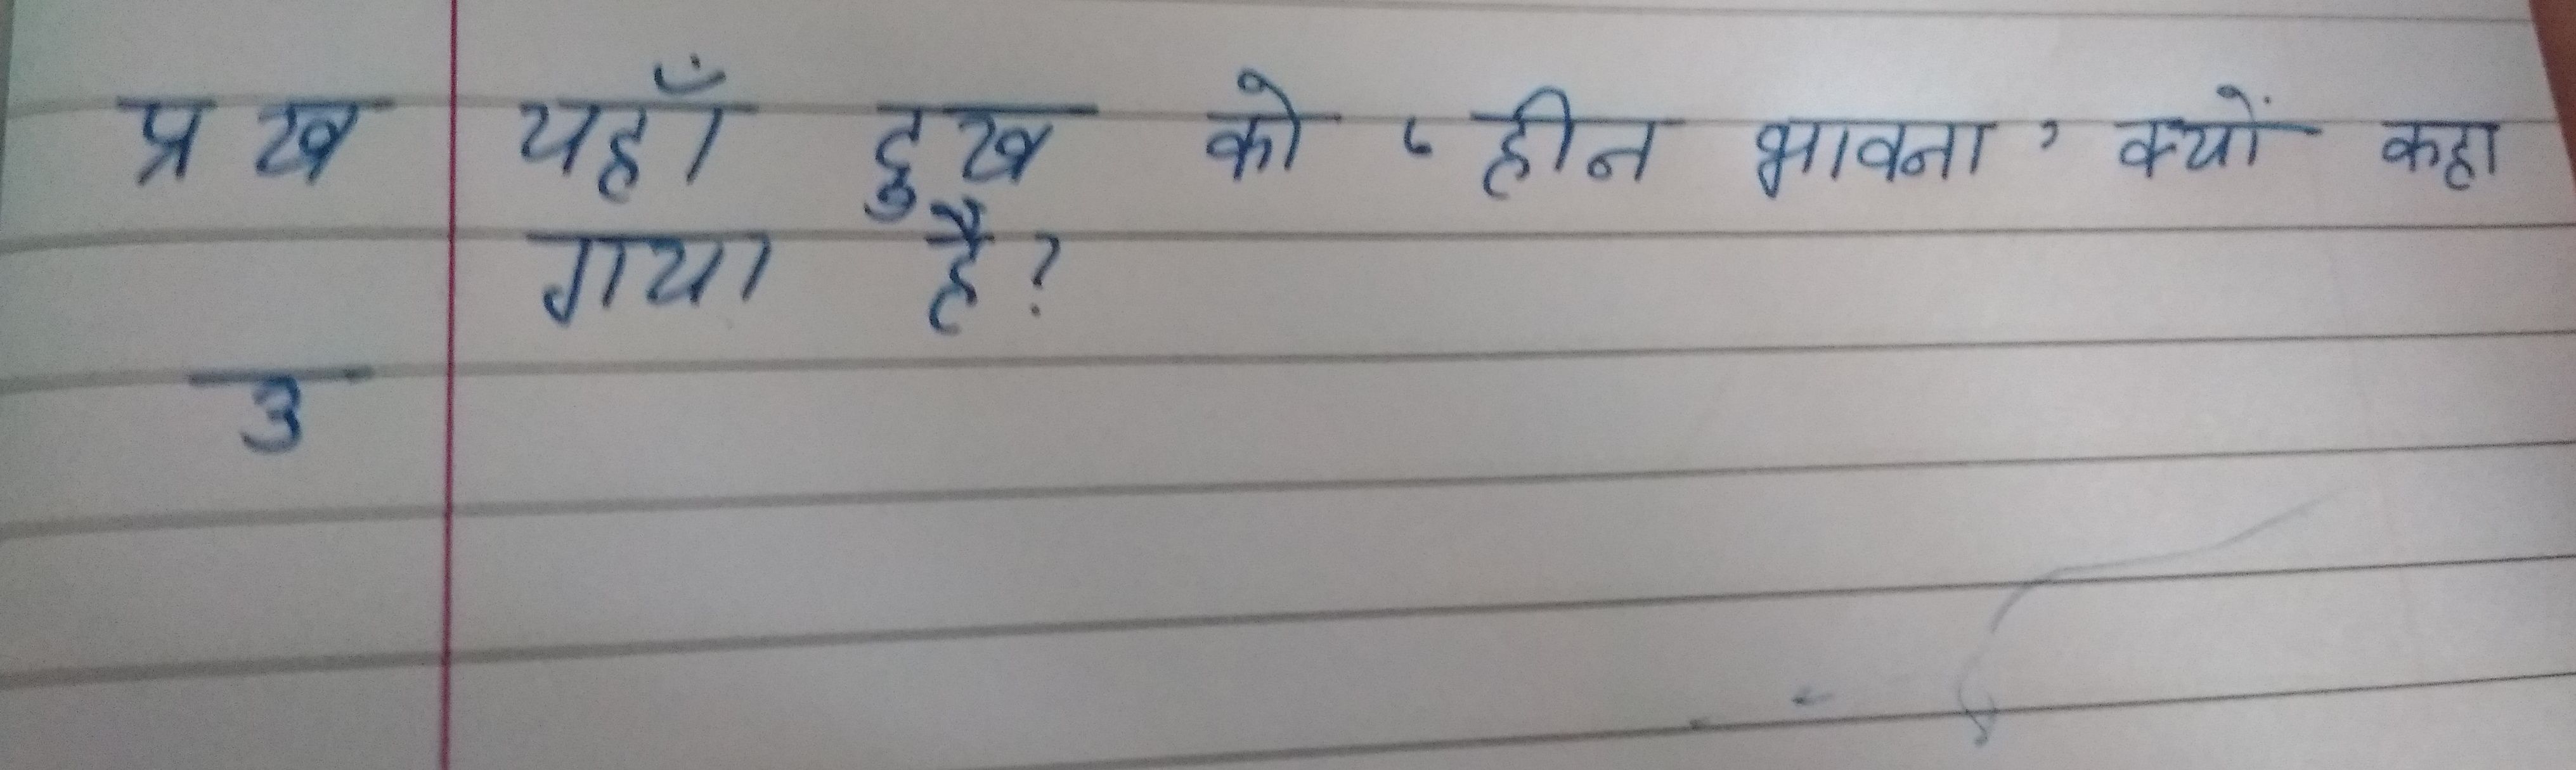 प्र ख यहाँ दुख को 'हीन भावना' क्यों कहा
गया है?
उ